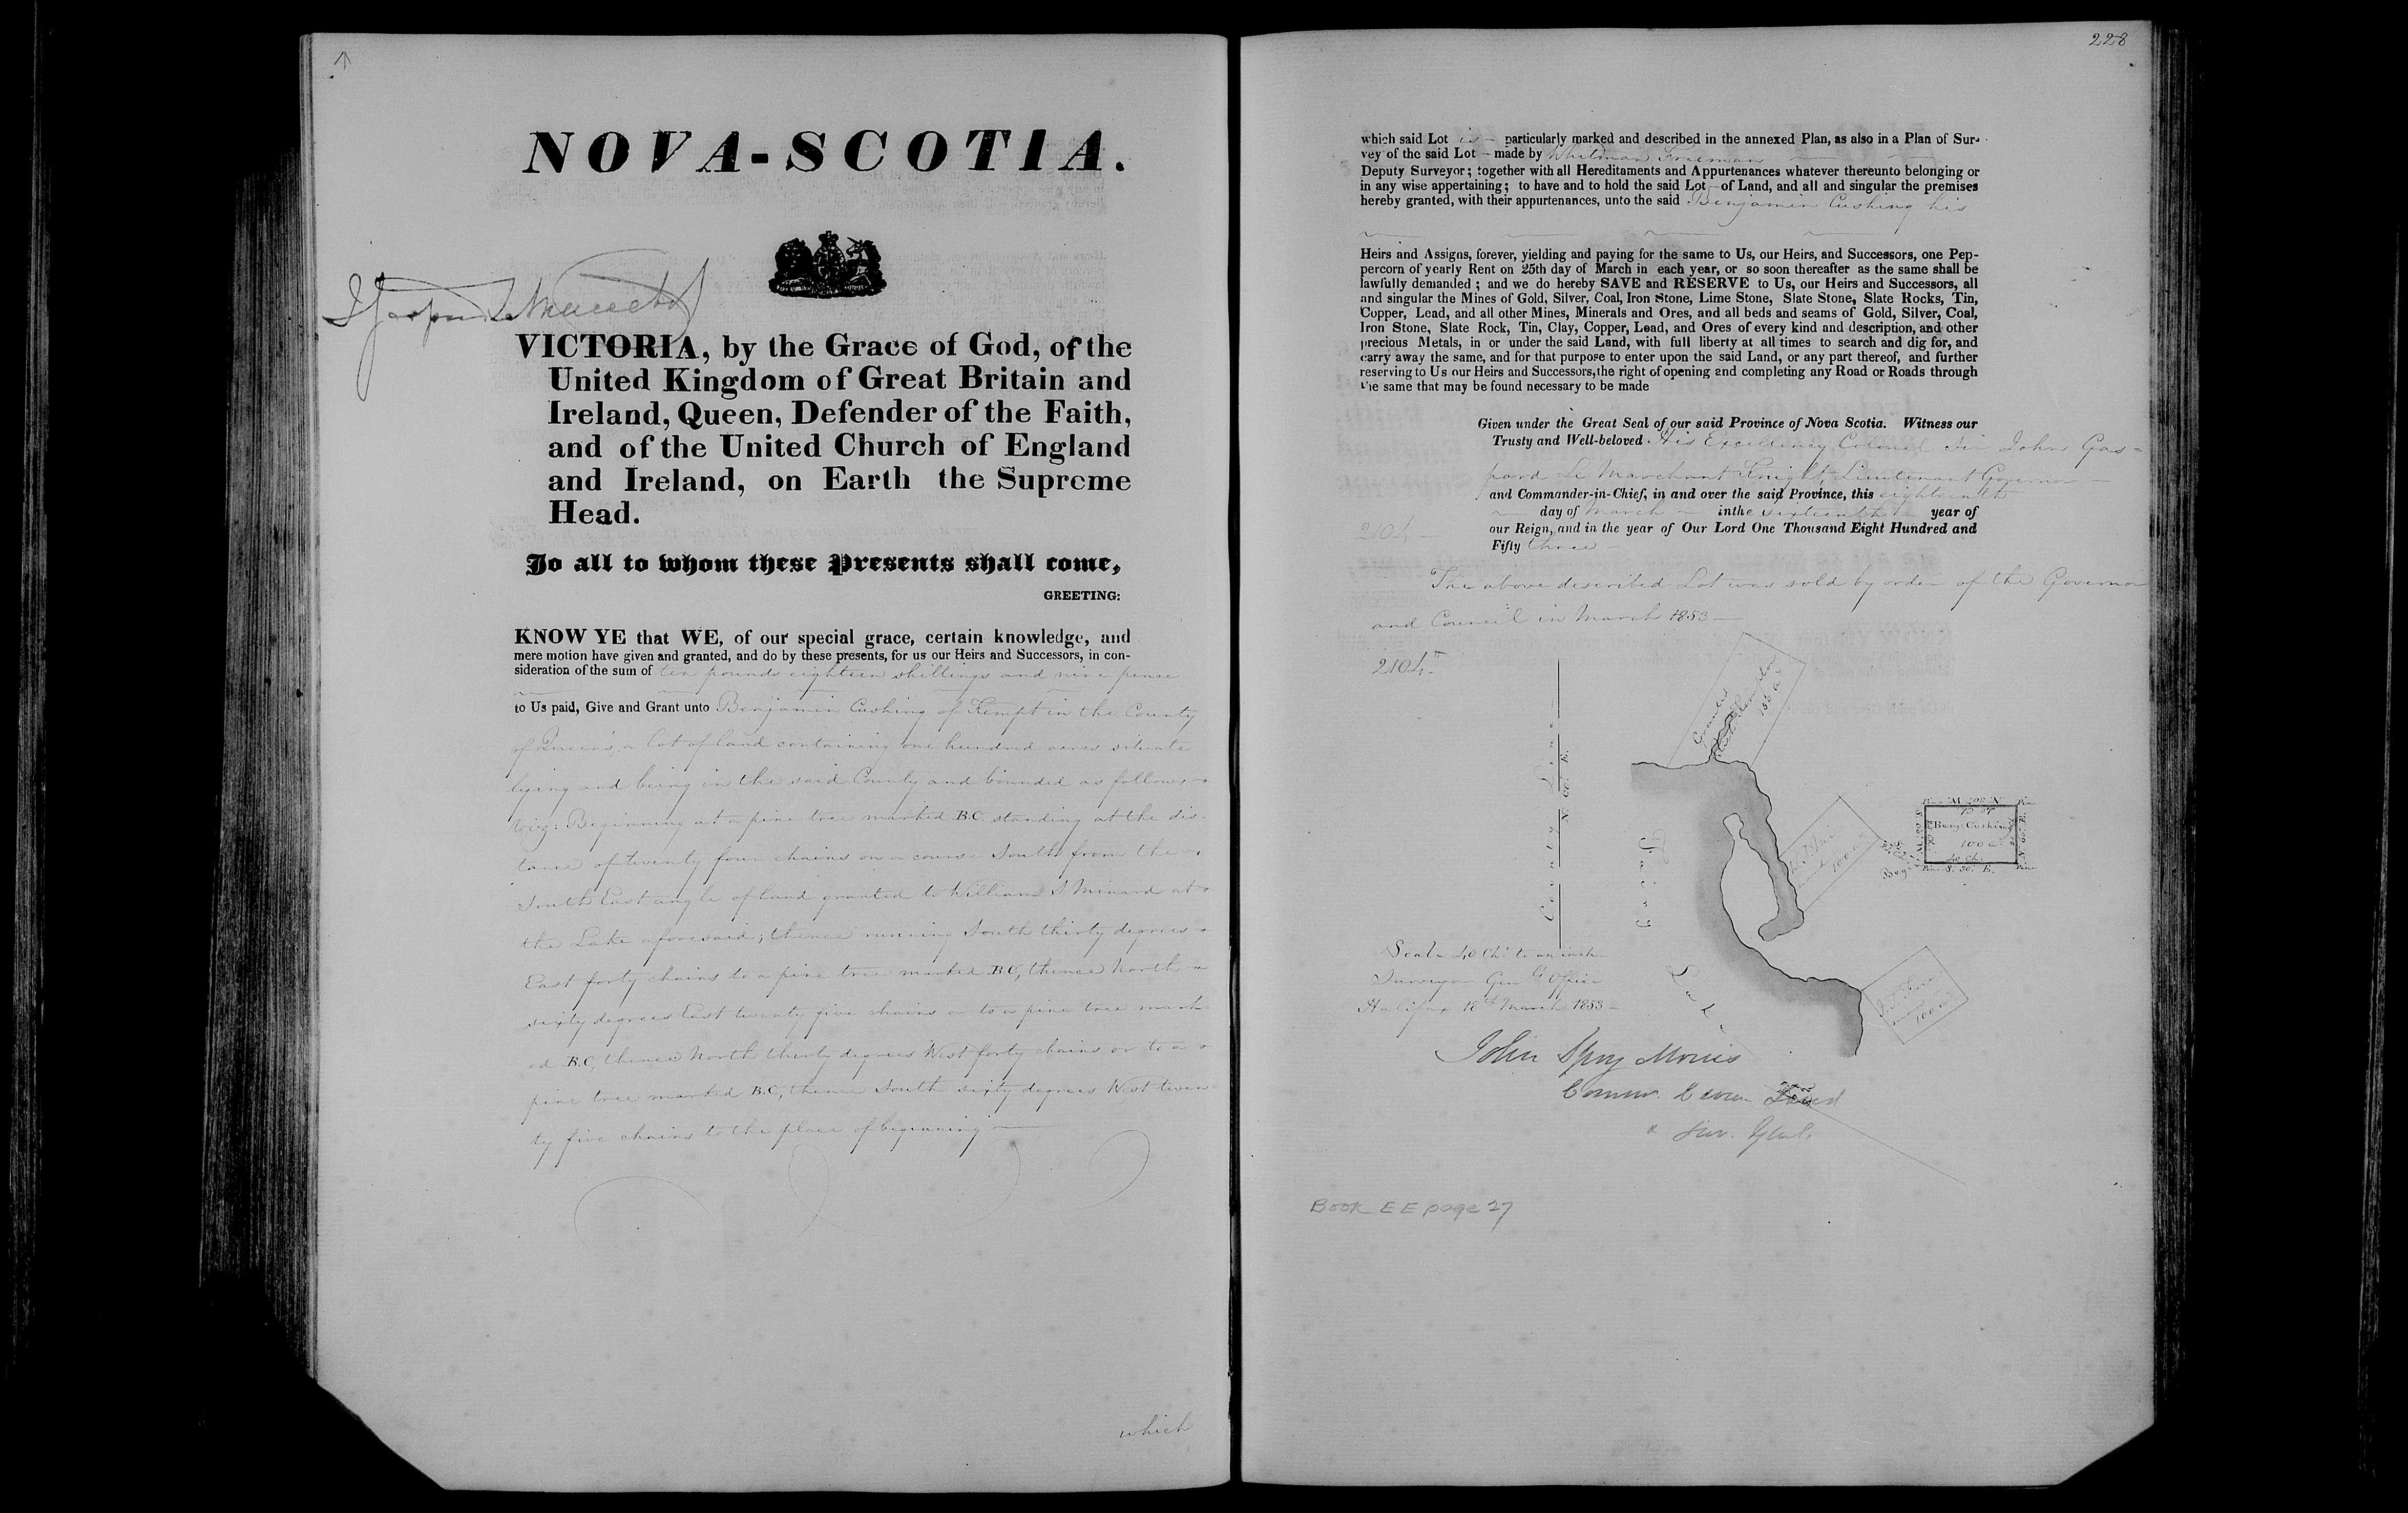 NOVA-SCOTIA.
VICTORIA, by the Grace of God, of the
United Kingdom of Great Britain and
Ireland, Queen, Defender of the Faith,
and of the United Church of England
and Ireland, on Earth the Supreme
Head.
To all to whom these Presents shall come,
GREETING:
KNOW YE that WE, of our special grace, certain knowledge, and
mere motion have given and granted, and do by these presents, for us our Heirs and Successors, in con-
sideration of the sum of ten pounds eighteen shillings and nine pence
to Us paid, Give and Grant unto Benjamin Cushing of Kempt in the County
of Queen's, a lot of land containing one hundred acres situate
lying and being in the said County and bounded as follows
viz: Beginning at a pine tree marked B.C. standing at the dis-
tance of twenty four chains on a course South from the
South East angle of land granted to William S Minard at
the Lake aforesaid; thence running South thirty degrees
East forty chains to a pine tree marked B.C, thence North
sixty degrees East twenty five chains or to a pine tree mark
ed B.C, thence North thirty degrees West forty chains or to a
pine tree marked B.C, thence South sixty degrees West twen
ty five chains to the place of beginning
which
228
which said Lot is particularly marked and described in the annexed Plan, as also in a Plan of Sur-
vey of the said Lot made by Whitman Freeman
Deputy Surveyor; together with all Hereditaments and Appurtenances whatever thereunto belonging or
in any wise appertaining; to have and to hold the said Lot of Land, and all and singular the premises
hereby granted, with their appurtenances, unto the said Benjamin Cushing his
Heirs and Assigns, forever, yielding and paying for the same to Us, our Heirs, and Successors, one Pep-
percorn of yearly Rent on 25th day of March in each year, or so soon thereafter as the same shall be
lawfully demanded; and we do hereby SAVE and RESERVE to Us, our Heirs and Successors, all
and singular the Mines of Gold, Silver, Coal, Iron Stone, Lime Stone, Slate Stone, Slate Rocks, Tin,
Copper, Lead, and all other Mines, Minerals and Ores, and all beds and seams of Gold, Silver, Coal,
Iron Stone, Slate Rock, Tin, Clay, Copper, Lead, and Ores of every kind and description, and other
precious Metals, in or under the said Land, with full liberty at all times to search and dig for, and
carry away the same, and for that purpose to enter upon the said Land, or any part thereof, and further
reserving to Us our Heirs and Successors, the right of opening and completing any Road or Roads through
the same that may be found necessary to be made
Given under the Great Seal of our said Province of Nova Scotia. Witness our
Trusty and Well-beloved His Excellency Colonel Sir John Gas=
pard Le Marchant Knight, Lieutenant Governor
and Commander-in-Chief, in and over the said Province, this eighteenth
day of March inthe sixteenth year of
2104
our Reign, and in the year of Our Lord One Thousand Eight Hundred and
Fifty three
The above described Lot was sold by order of the Governor
and Council in March 1853
2104
Granted
150 a
County Line
N. 60. E.
100 a
Benj: Cushing
100 a
40 Ch.
S. 30. E.
Lake
100 a
Scale 40 Ch: to an inch
Surveyor Genl. Office
Halifax 18th March 1853
John Spry Morris
Commr. Crown Land
& Sur. Genl.
Book EE page 27